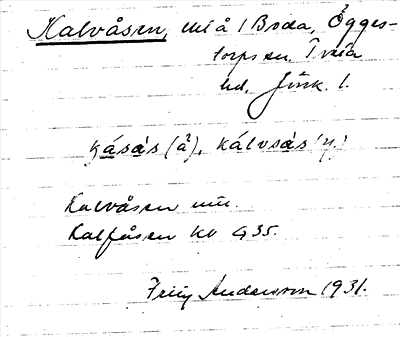 Kalvåsen, utl å / Boda, Ögges-
torps sn, Tveta
hd, Jönk. l.
kásás (ä), kálvsás (y.)
Kalvåsen utl.
Kalfåsen kv G35.
Fritz Andersson 1931.